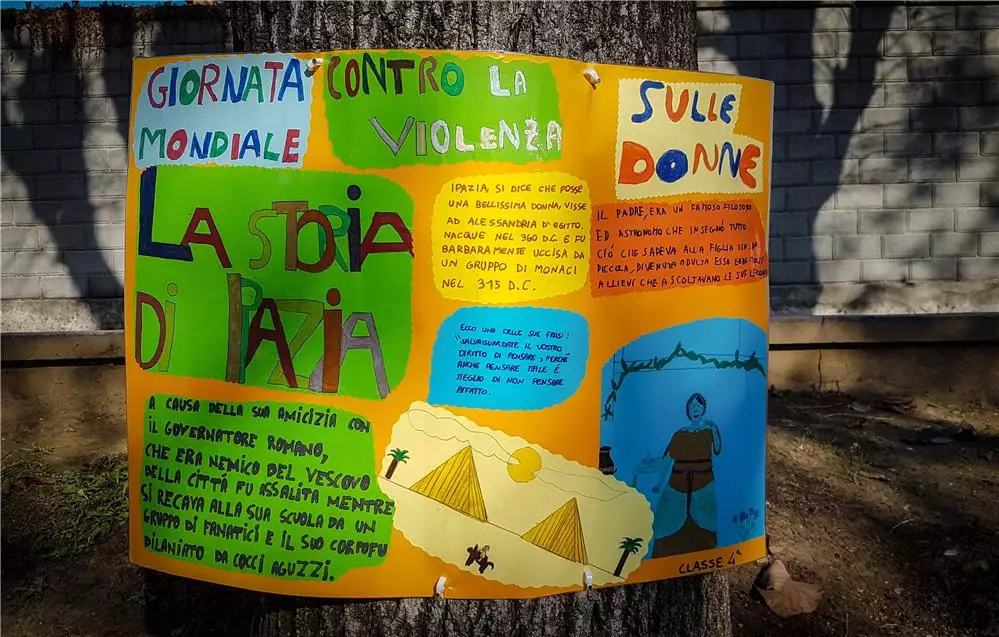 GIORNATA
MONDIALE
CONTRO LA
VIOLENZA
SULLE
DONNE
LA STORIA
DI IPAZIA
IPAZIA, SI DICE CHE FOSSE
UNA BELLISSIMA DONNA, VISSE
AD ALESSANDRIA D'EGITTO.
NACQUE NEL 360 D.C. E FU
BARBARAMENTE UCCISA DA
UN GRUPPO DI MONACI
NEL 315 D.C.
IL PADRE, ERA UN FAMOSO FILOSOFO
ED ASTRONOMO CHE INSEGNÓ TUTTO
CIÓ CHE SAPEVA ALLA FIGLIA SIN DA
PICCOLA, DIVENUTA ADULTA ESSA EBBE MOLTI
ALLIEVI CHE ASCOLTAVANO LE SUE LEZIONI
ECCO UNA DELLE SUE FRASI:
"SALVAGUARDATE IL VOSTRO
DIRITTO DI PENSARE, PERCHÉ
ANCHE PENSARE MALE É
MEGLIO DI NON PENSARE
AFFATTO.
A CAUSA DELLA SUA AMICIZIA CON
IL GOVERNATORE ROMANO,
CHE ERA NEMICO DEL VESCOVO
DELLA CITTÁ FU ASSALITA MENTRE
SI RECAVA ALLA SUA SCUOLA DA UN
GRUPPO DI FANATICI E IL SUO CORPO FU
DILANIATO DA COCCI AGUZZI.
CLASSE 4ª